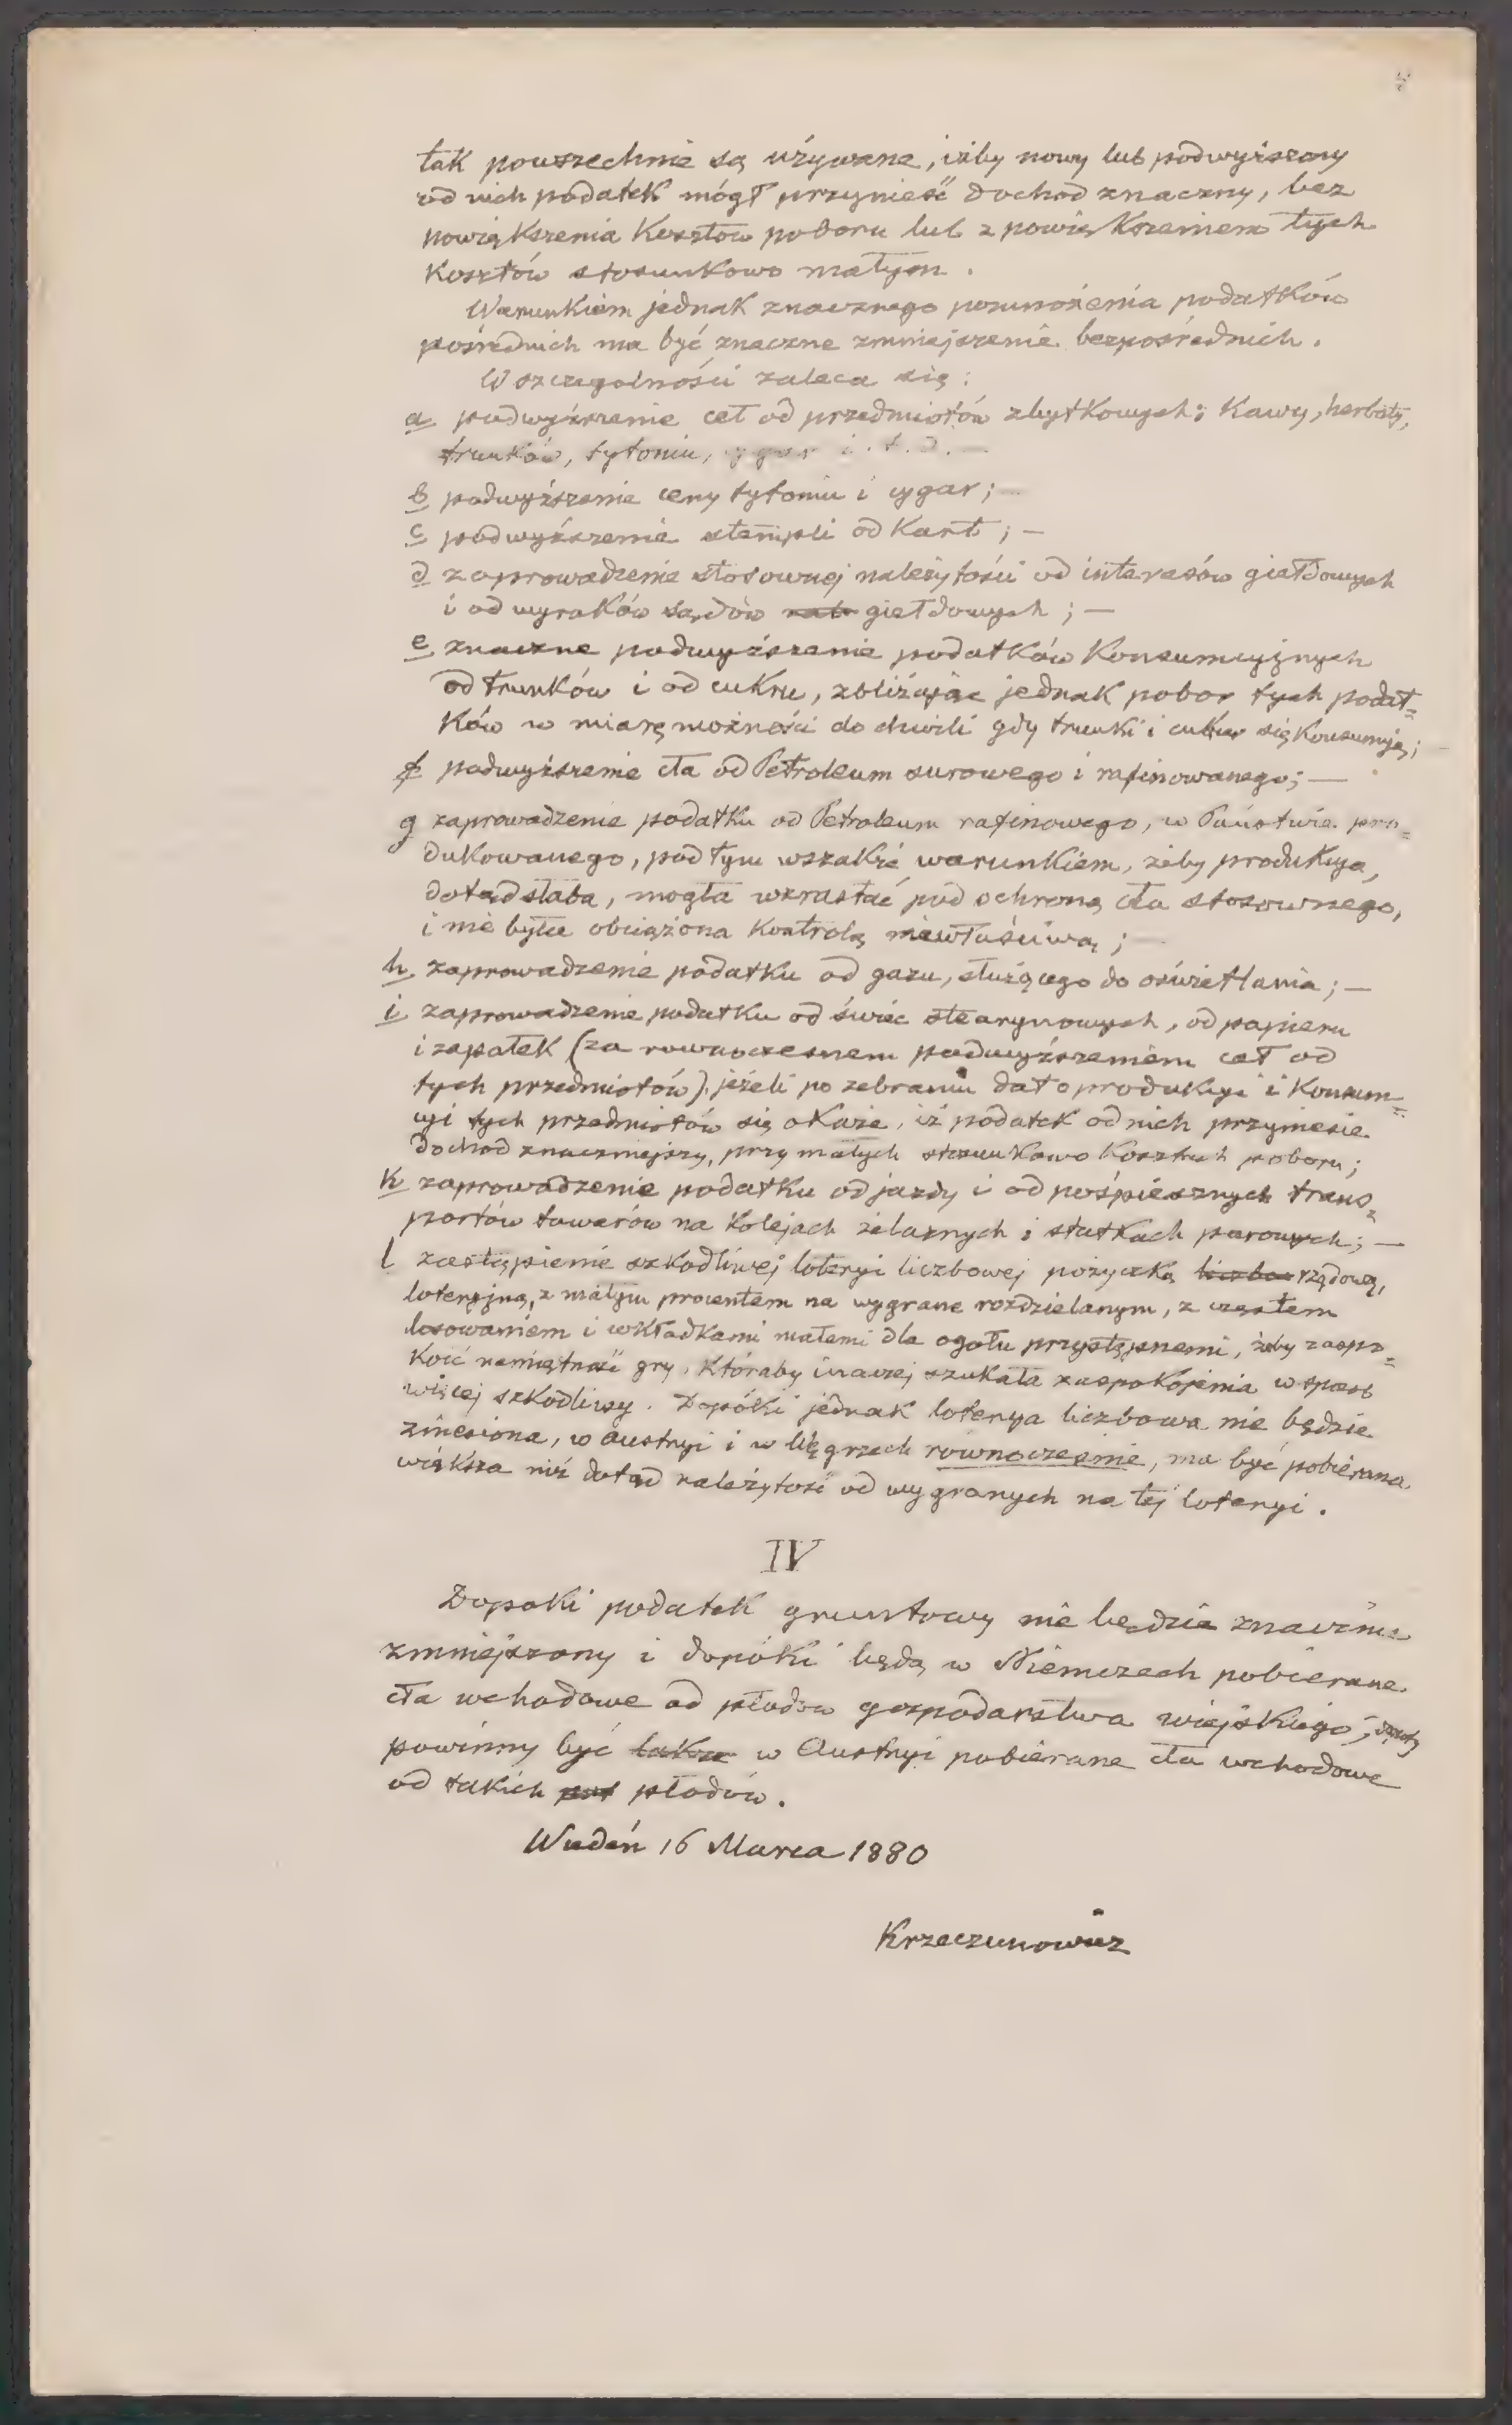 tak powszechnie są używane, iżby nowy lub podwyższony
od nich podatek mógł przynieść dochód znaczny, bez
powiększenia kosztów poboru lub z powiększeniem tych
kosztów stosunkowo małym.
Warunkiem jednak znacznego pomnożenia podatków
pośrednich ma być znaczne zmniejszenie bezpośrednich.
W szczególności zaleca się:
a podwyższenie ceł od przedmiotów zbytkowych; kawy, herbaty,
trunków, tytoniu, cygar i. t. d. —
b podwyższenie ceny tytoniu i cygar; —
c podwyższenie stempli od kart; —
d zaprowadzenie stosownej należytości od interesów giełdowych
i od wyroków sądów giełdowych; —
e znaczne podwyższenie podatków konsumcyjnych
od trunków i od cukru, zbliżając jednak pobor tych podat=
ków w miarę możności do chwili gdy trunki i cukier się konsumują; —
f podwyższenie cła od Petroleum surowego i rafinowanego; —
g zaprowadzenie podatku od Petroleum rafinowego, w Państwie pro=
dukowanego, pod tym wszakże warunkiem, żeby produkcya,
dotąd słaba, mogła wzrastać pod ochroną cła stosownego,
i nie była obciążona kontrolą niewłaściwą; —
h zaprowadzenie podatku od gazu, służącego do oświetlania; —
i zaprowadzenie podatku od świec stearynowych, od papieru
i zapałek (za rownoczesnem podwyższeniem ceł od
tych przedmiotów), jeżeli po zebraniu dat o produkcyi i konsum=
cyi tych przedmiotów się okaże, iż podatek od nich przyniesie
dochod znaczniejszy, przy małych stosunkowo kosztach poboru;
k zaprowadzenie podatku od jazdy i od pośpiesznych trans=
portów towarów na kolejach żelaznych i statkach parowych; —
l zastąpienie szkodliwej loteryi liczbowej pożyczką rządową,
loteryjną, z małym procentem na wygrane rozdzielanym, z częstem
losowaniem i wkładkami małemi dla ogołu przystępnemi, żeby zaspo=
koić namiętność gry, któraby inaczej szukała zaspokojenia w sposób
więcej szkodliwy. Dopóki jednak loterya liczbowa nie będzie
zniesiona, w Austryi i w Węgrzech rownocześnie, ma być pobierana
większa niż dotąd należytość od wygranych na tej loteryi.
IV
Dopoki podatek gruntowy nie będzie znacznie
zmniejszony i dopóki będą w Niemczech pobierane
cła wchodowe od płodów gospodarstwa wiejskiego,
powinny być w Austryi pobierane cła wchodowe
od takich płodów.
Wiedeń 16 Marca 1880
Krzeczunowicz